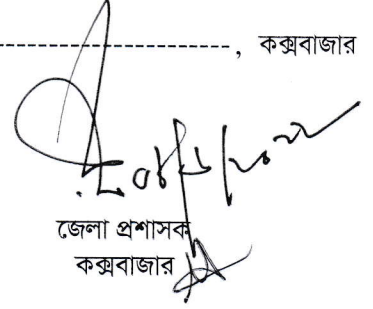 --------------------------, কক্সবাজার
জেলা প্রশাসক
কক্সবাজার